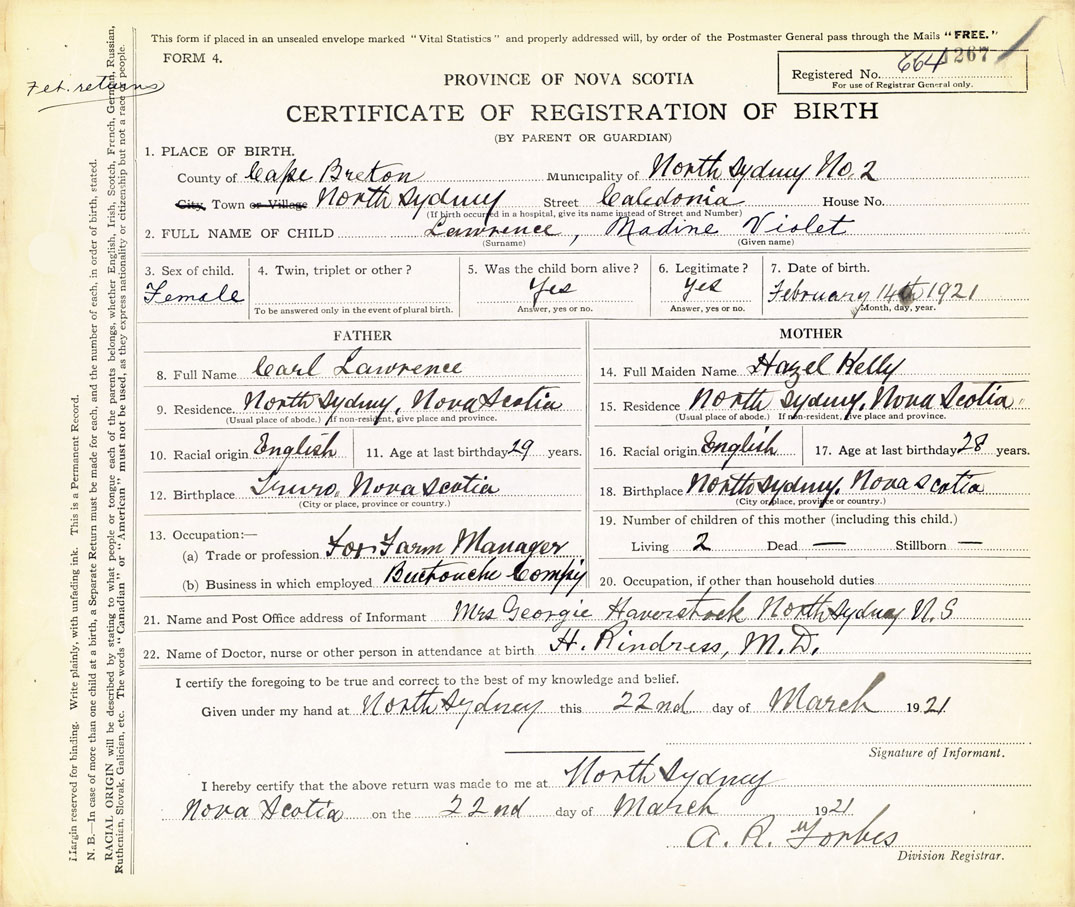 This form if placed in an unsealed envelope marked "Vital Statistics" and properly addressed will, by order of the Postmaster General pass through the Mails "FREE."
FORM 4.
664 1267
Registered No.
For use of Registrar General only.
Feb. returns
PROVINCE OF NOVA SCOTIA
CERTIFICATE OF REGISTRATION OF BIRTH
(BY PARENT OR GUARDIAN)
1. PLACE OF BIRTH.
County of Cape Breton Municipality of North Sydney No. 2
City, Town or Village North Sydney Street Caledonia House No.
(If birth occured in a hospital, give its name instead of Street and Number)
2. FULL NAME OF CHILD Lawrence, Madine Violet
(Surname) (Given name)
3. Sex of child. 4. Twin, triplet or other? 5. Was the child born alive? 6. Legitimate? 7. Date of birth.
Female Yes Yes February 14th 1921
To be answered only in the event of plural birth. Answer, yes or no. Answer, yes or no. Month, day, year.
FATHER
8. Full Name Carl Lawrence
9. Residence North Sydney, Nova Scotia
(Usual place of abode.) If non-resident, give place and province.
10. Racial origin English 11. Age at last birthday 29 years.
12. Birthplace Truro, Nova Scotia
(City or place, province or country.)
13. Occupation:—
(a) Trade or profession Fox Farm Manager
(b) Business in which employed Buctouche Compy
MOTHER
14. Full Maiden Name Hazel Kelly
15. Residence North Sydney, Nova Scotia
(Usual place of abode.) If non-resident, give place and province.
16. Racial origin English 17. Age at last birthday 28 years.
18. Birthplace North Sydney, Nova Scotia
(City or place, province or country.)
19. Number of children of this mother (including this child.)
Living 2 Dead — Stillborn —
20. Occupation, if other than household duties
21. Name and Post Office address of Informant Mrs Georgie Haverstock North Sydney N.S
22. Name of Doctor, nurse or other person in attendance at birth H. Rindress, M.D.
I certify the foregoing to be true and correct to the best of my knowledge and belief.
Given under my hand at North Sydney this 22nd day of March 1921
Signature of Informant.
I hereby certify that the above return was made to me at North Sydney
Nova Scotia on the 22nd day of March 1921
A. R. Forbes
Division Registrar.
Margin reserved for binding. Write plainly, with unfading ink. This is a Permanent Record.
N. B.—In case of more than one child at a birth, a Separate Return must be made for each, and the number of each, in order of birth, stated.
RACIAL ORIGIN will be described by stating to what people or tongue each of the parents belongs, whether English, Irish, Scotch, French, German, Russian,
Ruthenian, Slovak, Galician, etc. The words "Canadian" or "American" must not be used, as they express nationality or citizenship but not a race or people.